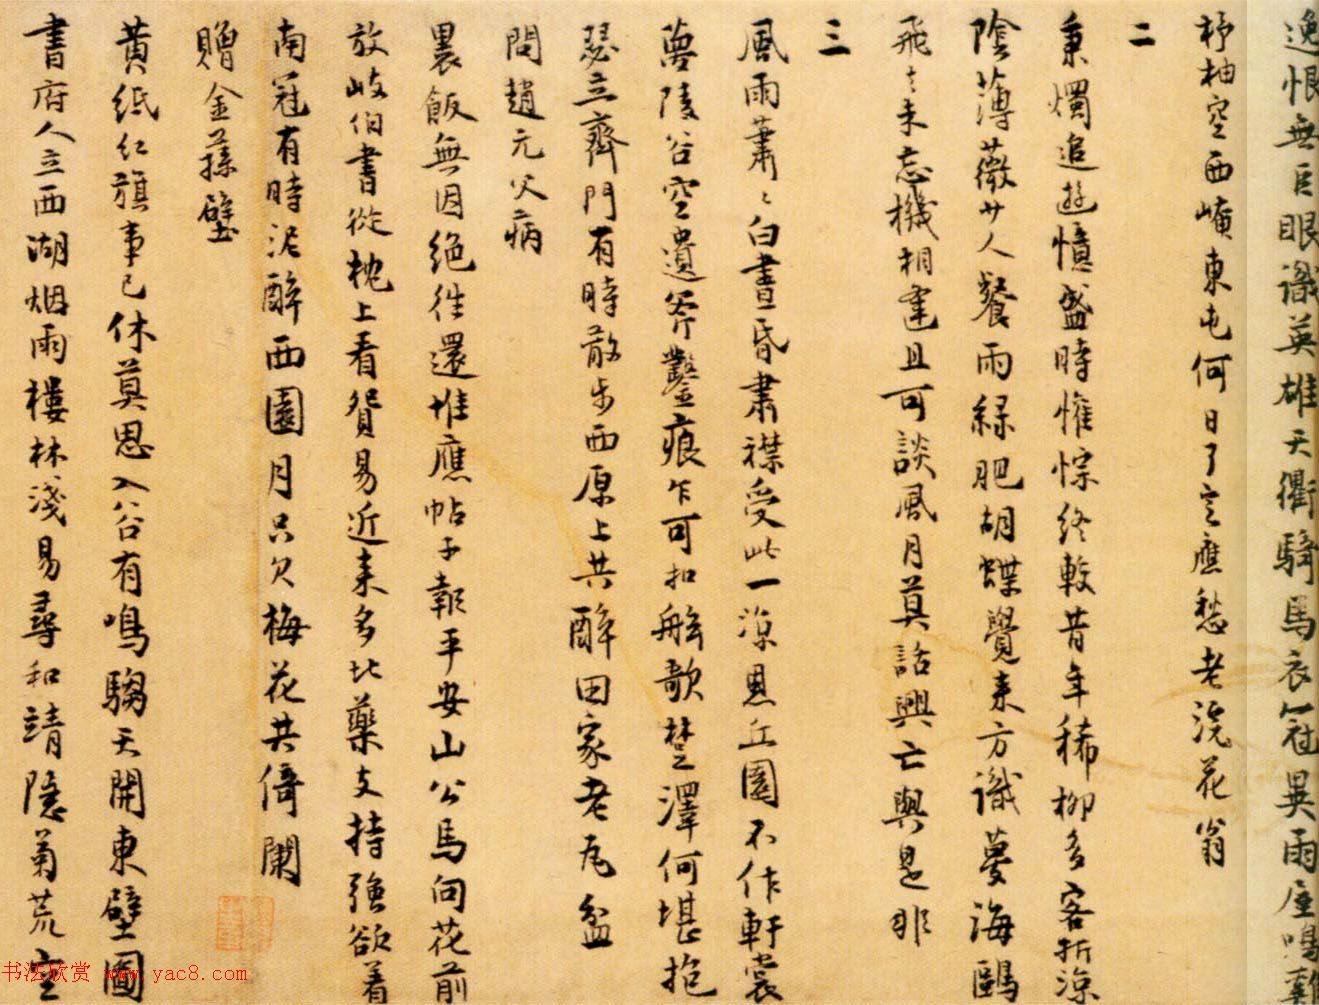 逸恨無巨眼識英雄天衢騎馬衣冠異雨屋鳴雞
杼柚空西崦東屯何日了之應愁老浣花翁
二
秉燭追遊憶盛時惟悰終較昔年稀柳多客折涼
陰薄薇少人餐雨綠肥胡蝶覺来方識夢海鷗
飛〻未忘機相逢且可談風月莫話興亡與是非
三
風雨蕭〻白晝昏肅襟受此一涼恩丘園不作軒裳
夢陵谷空遺斧鑿痕乍可扣舷歌楚澤何堪抱
瑟立齊門有時散步西原上共醉田家老瓦盆
問趙元父病
裹飯無因絕往還堆應帖子報平安山公馬向花前
放岐伯書從枕上看貲易近来多比藥支持強欲着
南冠有時泥醉西園月只欠梅花共倚闌
贈金蓀壁
黃紙紅旗事已休莫思入谷有鳴騶天開東壁圖
書府人立西湖烟雨樓林淺易尋和靖隱菊荒空
书法欣赏 www.yac8.com